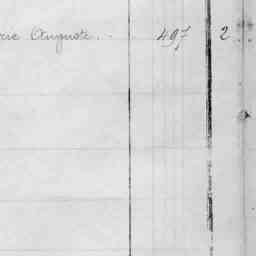 rie Auguste. 497 2